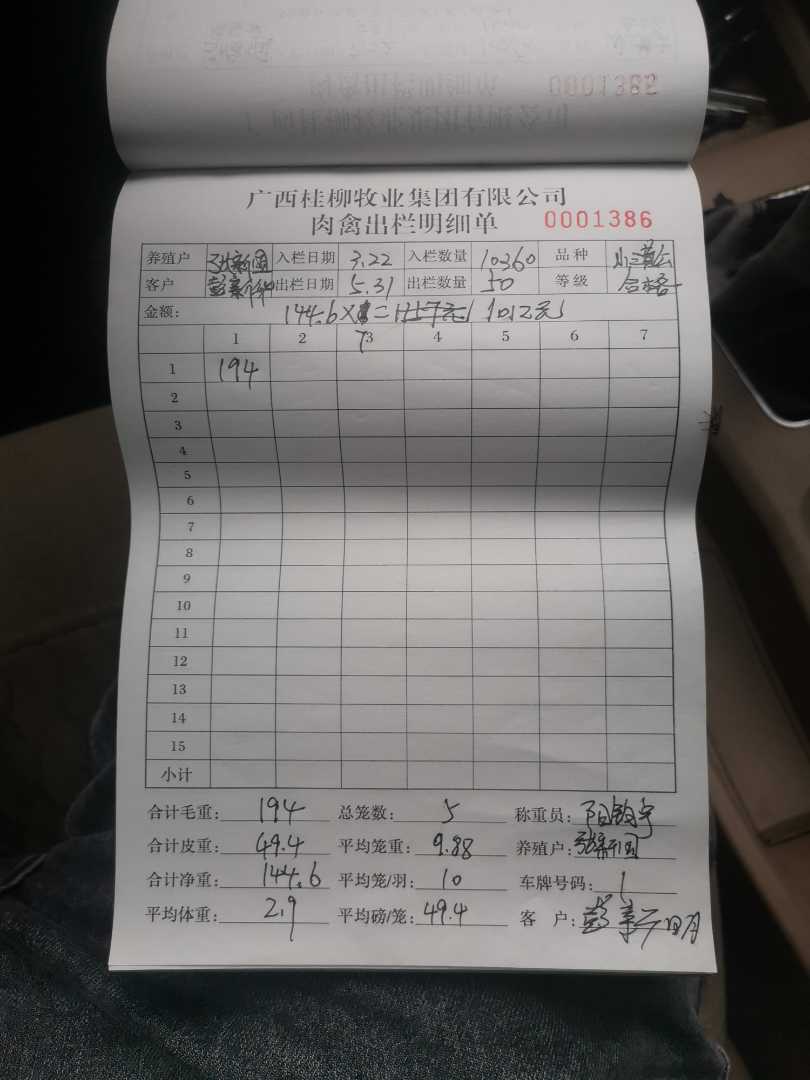 广西桂柳牧业集团有限公司
肉禽出栏明细单 0001386
养殖户 入栏日期 3.22 入栏数量 10360 品种
客户 出栏日期 5.31 出栏数量 50 等级 合格
金额: 144.6×7= 1012元
1 2 3 4 5 6 7
1 194
2
3
4
5
6
7
8
9
10
11
12
13
14
15
小计
合计毛重: 194 总笼数: 5 称重员:
合计皮重: 49.4 平均笼重: 9.88 养殖户:
合计净重: 144.6 平均笼/羽: 10 车牌号码: 1
平均体重: 2.9 平均磅/笼: 49.4 客 户: 彭